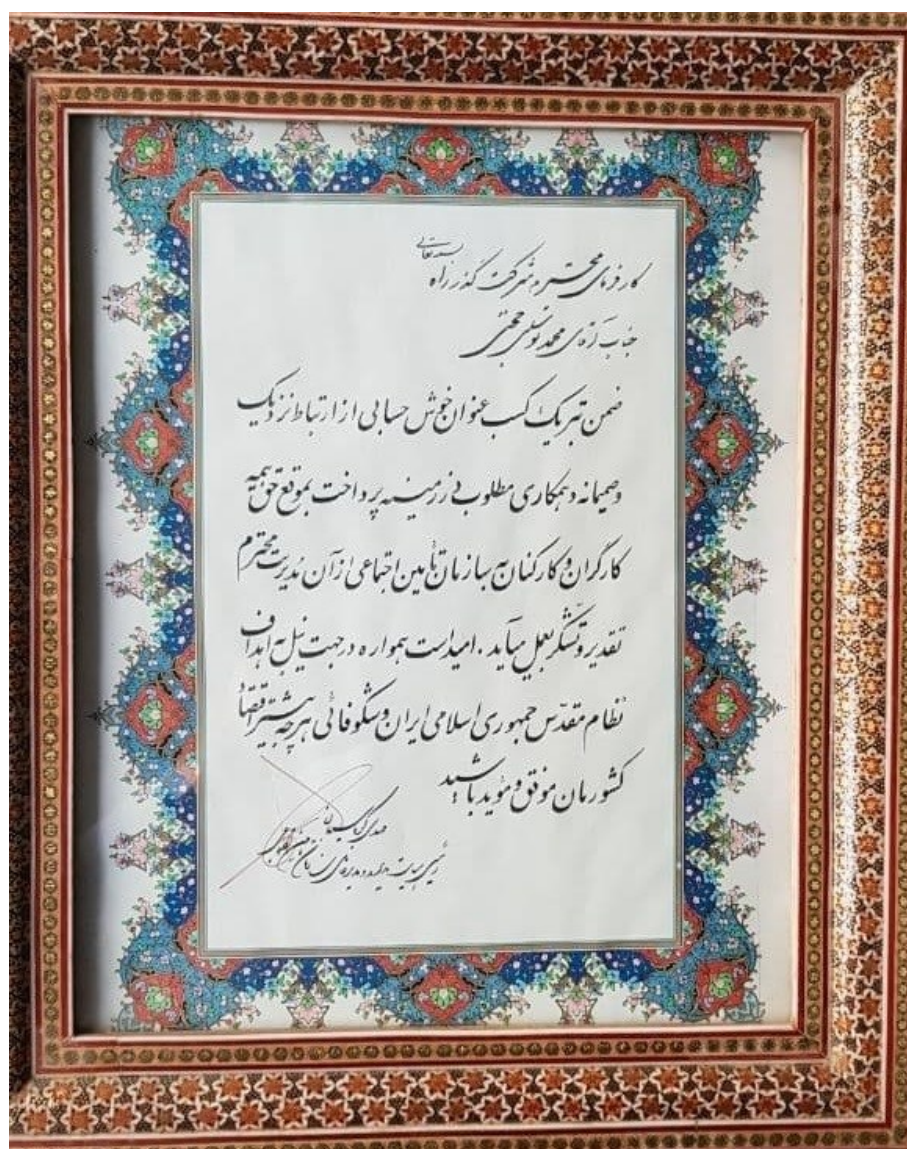 بسمه تعالی
کارفرمای محترم شرکت گذر راه
جناب آقای محمد یوسفی
ضمن تبریک کسب عنوان خوش حسابی از ارتباط نزدیک
و صمیمانه و همکاری مطلوب در زمینه پرداخت بموقع حق بیمه
کارگران و کارکنان به سازمان تأمین اجتماعی از آن مدیریت محترم
تقدیر و تشکر بعمل میآید. امید است همواره در جهت نیل به اهداف
نظام مقدّس جمهوری اسلامی ایران و شکوفائی هر چه بیشتر اقتصاد
کشورمان موفق و مؤید باشید
مهدی کرباسیان
رئیس هیئت مدیره و مدیرعامل سازمان تأمین اجتماعی